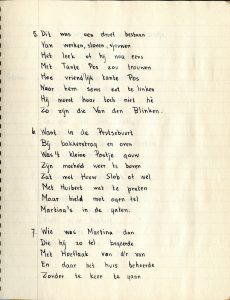 5. Dit was een doel bestaan
Van werken, sloven, sjouwen
Het leek of hij nog eens
Met Tante Pos zou trouwen
Hoe vriendlijk tante Pos
Naar hem soms zat te linken
Hij moest haar toch niet hè
Zo zijn die Van den Blinken.
6. Want in de Pretsebuurt
Bij bakkerstrog en oven
Was 't kleine Pootje gauw
Zijn macheld neer te boven
Zat met Heer Slob of wel
Met Huibert wat te praten
Maar hield met ogen tel
Martina's in de gaten.
7. Wie was Martina dan
Die hij zo tel begeerde
Met Hoetlaak van d'r van
En daar het huis beheerde
Zonder te keer te gaan